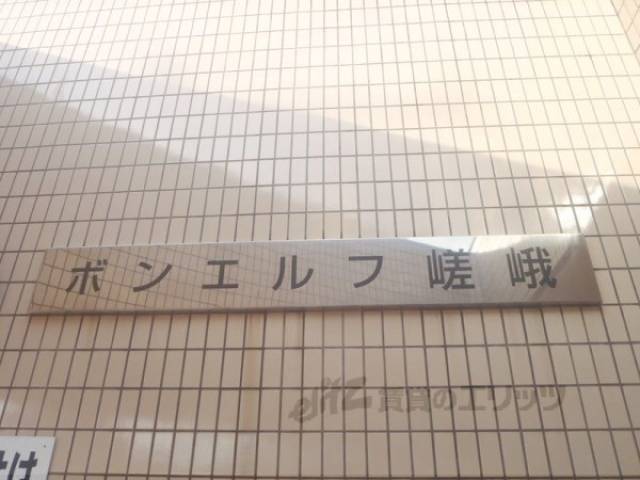 ボンエルフ嵯峨
elitz 賃貸のエリッツ